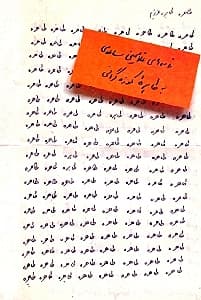 طاهره، طاهره عزیزم
نامه‌های غلامحسین ساعدی
به طاهره کوزه‌گرانی
طاهره طاهره طاهره طاهره طاهره طاهره طاهره
طاهره طاهره
طاهره طاهره
طاهره طاهره
طاهره طاهره طاهره
طاهره طاهره طاهره طاهره طاهره طاهره طاهره
طاهره طاهره طاهره طاهره طاهره طاهره طاهره
طاهره طاهره طاهره طاهره طاهره طاهره طاهره
طاهره طاهره طاهره طاهره طاهره طاهره طاهره
طاهره طاهره طاهره طاهره طاهره طاهره طاهره
طاهره طاهره طاهره طاهره طاهره طاهره طاهره
طاهره طاهره طاهره طاهره طاهره طاهره طاهره
طاهره طاهره طاهره طاهره طاهره طاهره طاهره
طاهره طاهره طاهره طاهره طاهره طاهره طاهره
طاهره طاهره طاهره طاهره طاهره طاهره طاهره طاهره
طاهره طاهره طاهره طاهره طاهره طاهره طاهره طاهره
طاهره طاهره طاهره طاهره طاهره طاهره طاهره طاهره